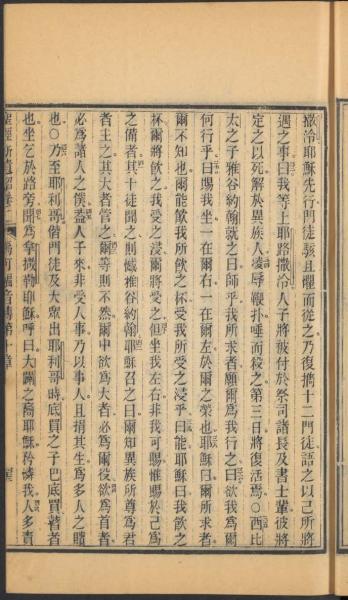 撒冷耶穌先行門徒駭且懼而從之乃復攜十二門徒語之以己所將
遇之事曰我等上耶路撒冷人子將被付於祭司諸長及書士輩彼將
定之以死解於異族人凌辱鞭扑唾而殺之第三日將復活焉○西比
太之子雅谷約翰就之曰師乎我所求者願爾爲我行之曰欲我爲爾
何行乎曰賜我坐一在爾右一在爾左於爾之榮也耶穌曰爾所求者
爾不知也爾能飲我所飲之杯受我所受之浸乎曰能耶穌曰我飲之
杯爾將飲之我受之浸爾將受之但坐我左右非我可賜惟賜於己爲
之備者其十徒聞之則憾雅谷約翰耶穌召之曰爾知異族所尊爲君
者主之其大者管之爾等則不然爾中欲爲大者必爲爾役欲爲首者
必爲諸人之僕蓋人子來非受人事乃以事人且捐其生爲多人之贖
也○乃至耶利哥偕門徒及大眾出耶利哥時底買之子巴底買瞽者
也坐乞於路旁聞爲拿撒勒耶穌呼曰大闢之裔耶穌矜憐我人多責
聖經新遺詔卷二
馬可福音傳第十章